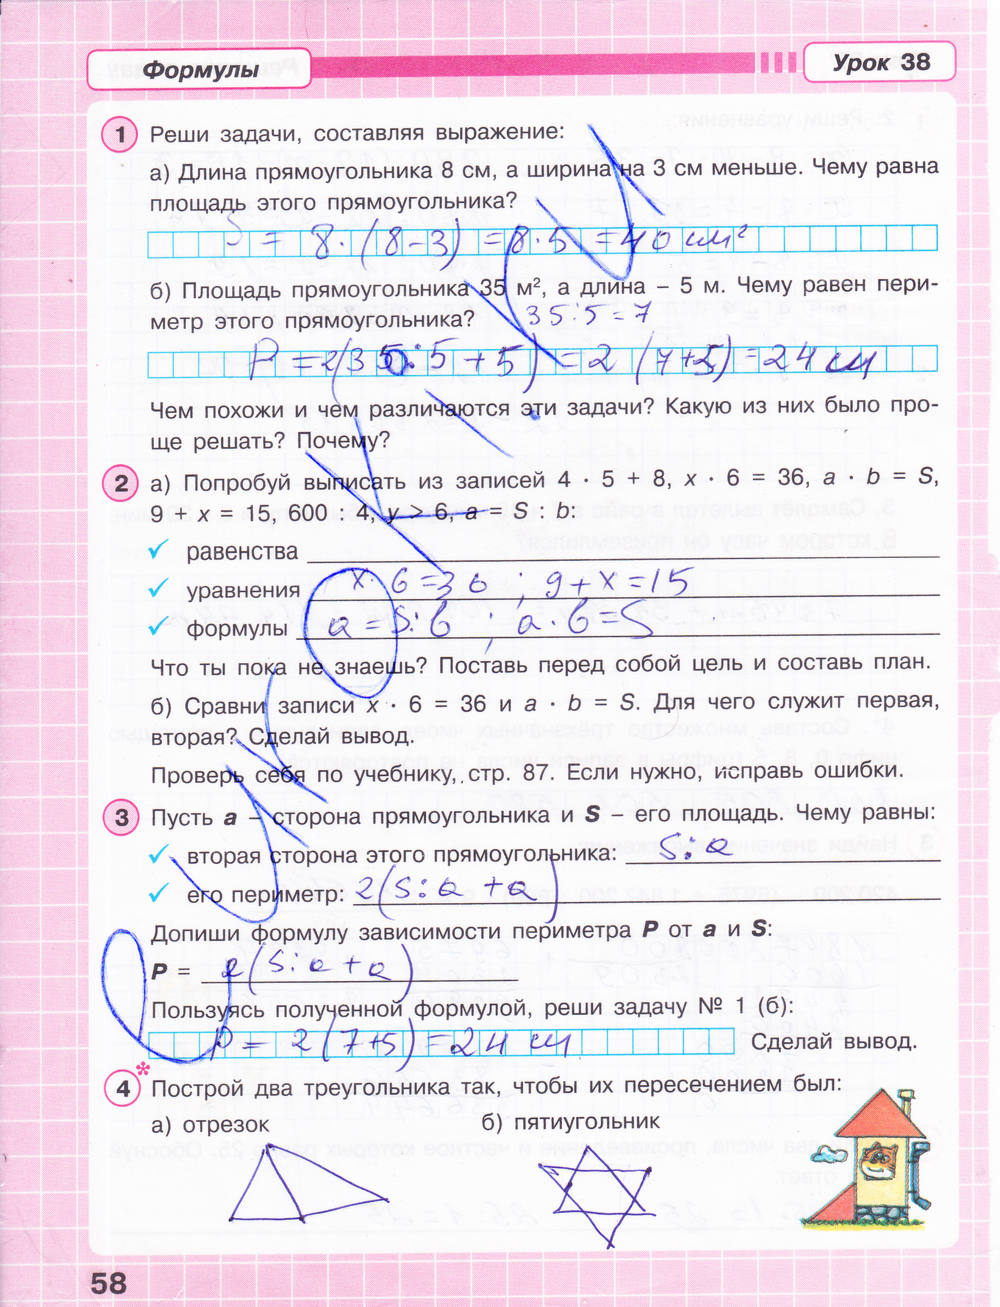 Формулы
Урок 38
1 Реши задачи, составляя выражение:
а) Длина прямоугольника 8 см, а ширина на 3 см меньше. Чему равна
площадь этого прямоугольника?
S = 8 · (8 - 3) = 8 · 5 = 40 см²
б) Площадь прямоугольника 35 м², а длина – 5 м. Чему равен пери-
метр этого прямоугольника? 35 : 5 = 7
P = 2(35 : 5 + 5) = 2 (7+5) = 24 см
Чем похожи и чем различаются эти задачи? Какую из них было про-
ще решать? Почему?
2 а) Попробуй выписать из записей 4 · 5 + 8, x · 6 = 36, a · b = S,
9 + x = 15, 600 : 4, y > 6, a = S : b:
равенства
уравнения x · 6 = 36 ; 9 + x = 15
формулы a = S : b ; a · b = S
Что ты пока не знаешь? Поставь перед собой цель и составь план.
б) Сравни записи x · 6 = 36 и a · b = S. Для чего служит первая,
вторая? Сделай вывод.
Проверь себя по учебнику, стр. 87. Если нужно, исправь ошибки.
3 Пусть a – сторона прямоугольника и S – его площадь. Чему равны:
вторая сторона этого прямоугольника: S : a
его периметр: 2(S : a + a)
Допиши формулу зависимости периметра P от a и S:
P = 2(S : a + a)
Пользуясь полученной формулой, реши задачу № 1 (б):
P = 2(7+5) = 24 см Сделай вывод.
4* Построй два треугольника так, чтобы их пересечением был:
а) отрезок б) пятиугольник
58